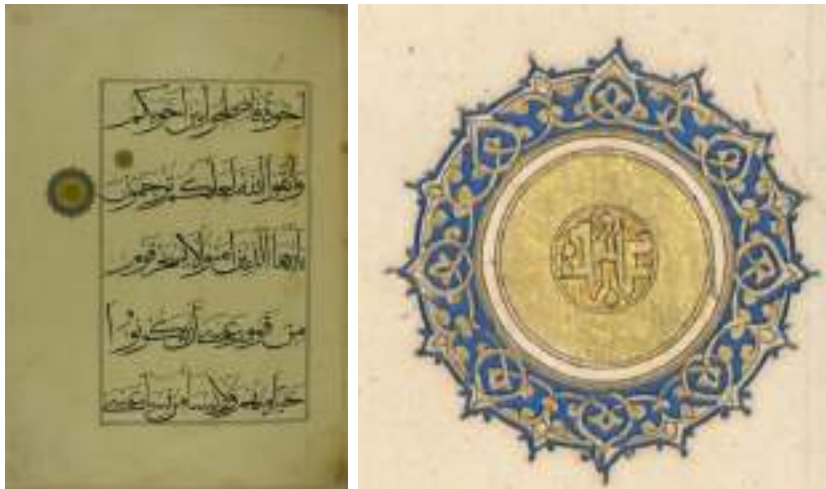 اخوة فاصلحوا بين اخويكم
واتقوا الله لعلكم ترحمون
يايها الذين امنوا لا يسخر قوم
من قوم عسى أن يكونوا
خيرا منهم ولا نسا من نسا عسى